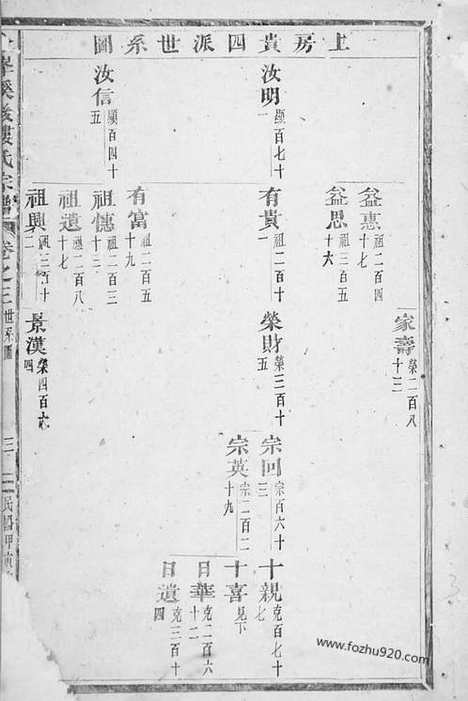 上房貴四派世系圖
汝明 顯百七十一
汝信 顯百四十五
益惠 祖二百四十七
益思 祖三百五十六
有貴 祖二百十一
有富 祖二百五十九
祖憓 祖二百三十三
祖遺 祖二百八十七
祖興 祖三百十二
家壽 榮二百八十三
榮財 榮三百十五
景漢 榮四百六十四
宗回 宗百六十三
宗英 宗二百二十九
十親 克百七十七
十喜 見下
日華 克二百六十二
日遺 克三百十四
溪 樓氏宗譜
卷之三 世系圖
三
民國甲
www.fozhu920.com